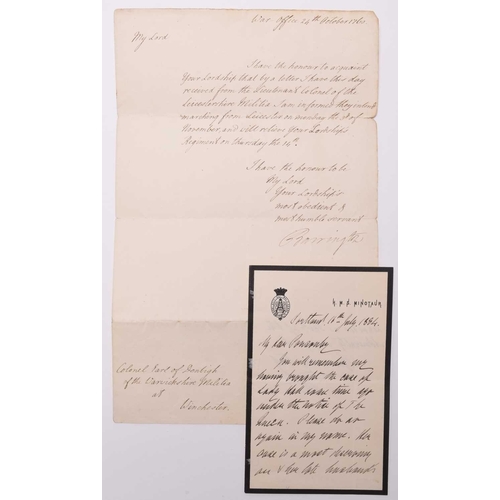 War Office 24th October 1760
My Lord
I have the honour to acquaint
Your Lordship that by a letter I have this day
received from the Lieutenant Colonel of the
Leicestershire Militia I am informed they
marching from Leicester on monday the of
November, and will relieve Your Lordship's
Regiment on thursday the
I have the honour to be
My Lord
Your Lordship's
most obedient &
most humble servant
Barrington
Colonel Earl of Denbigh
of the Warwickshire Militia
at
Winchester
H.M.S. MINOTAUR
Portland 16th July 1884
My dear Ponsonby
You will remember my
having brought the case of
Lady some time ago
under the notice of The
Queen. Please do so
again in my name. Her
case is a most deserving
one & her late husband's